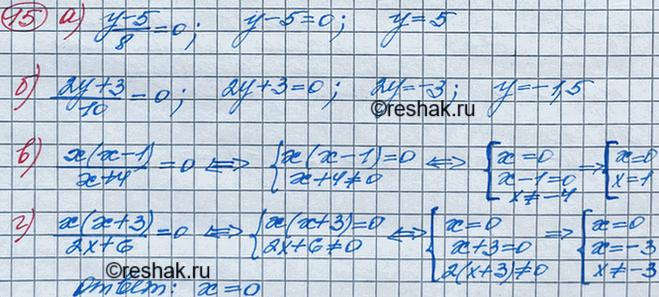 15 а) (y-5)/8=0; y-5=0; y=5
б) (2y+3)/10=0; 2y+3=0; 2y=-3; y=-1,5
©reshak.ru
в) x(x-1)/(x+4)=0 ⇔ {x(x-1)=0 x+4≠0 ⇔ {x=0 x-1=0 x≠-4 ⇒ {x=0 x=1
г) x(x+3)/(2x+6)=0 ⇔ {x(x+3)=0 2x+6≠0 ⇔ {x=0 x+3=0 2(x+3)≠0 ⇒ {x=0 x=-3 x≠-3
©reshak.ru
Ответ: x=0